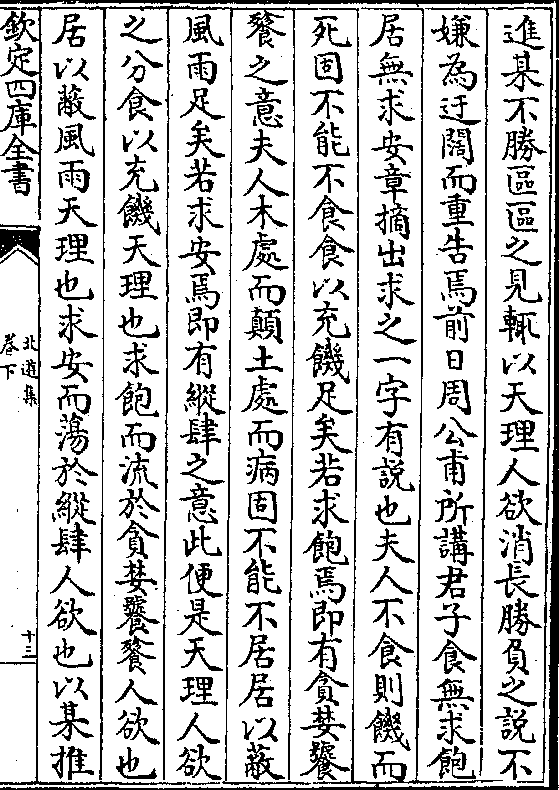 進某不勝區區之見輒以天理人欲消長勝負之説不
嫌為迂闊而重告焉前日周公甫所講君子食無求飽
居無求安章摘出求之一字有説也夫人不食則饑而
死固不能不食食以充饑足矣若求飽焉即有貪婪饕
餮之意夫人木處而顛土處而病固不能不居居以蔽
風雨足矣若求安焉即有縱肆之意此便是天理人欲
之分食以充饑天理也求飽而流於貪婪饕餮人欲也
居以蔽風雨天理也求安而蕩於縱肆人欲也以某推
欽定四庫全書
北遊集
卷下
十三